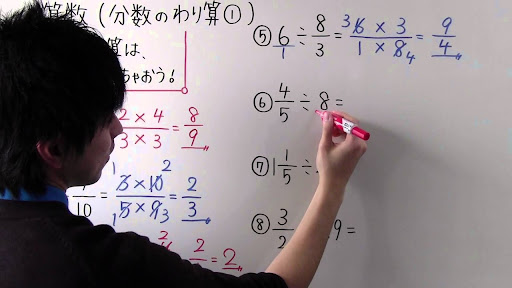 算数(分数のわり算①)
算は、
ちゃおう!
2 × 4 / 3 × 3 = 8/9
3 × 10 2 / 1 5 × 9 3 = 2/3
10
2 = 2
⑤ 6/1 ÷ 8/3 = 3 6 × 3 / 1 × 8 4 = 9/4
⑥ 4/5 ÷ 8 =
⑦ 1 1/5 ÷
⑧ 3/2 9 =